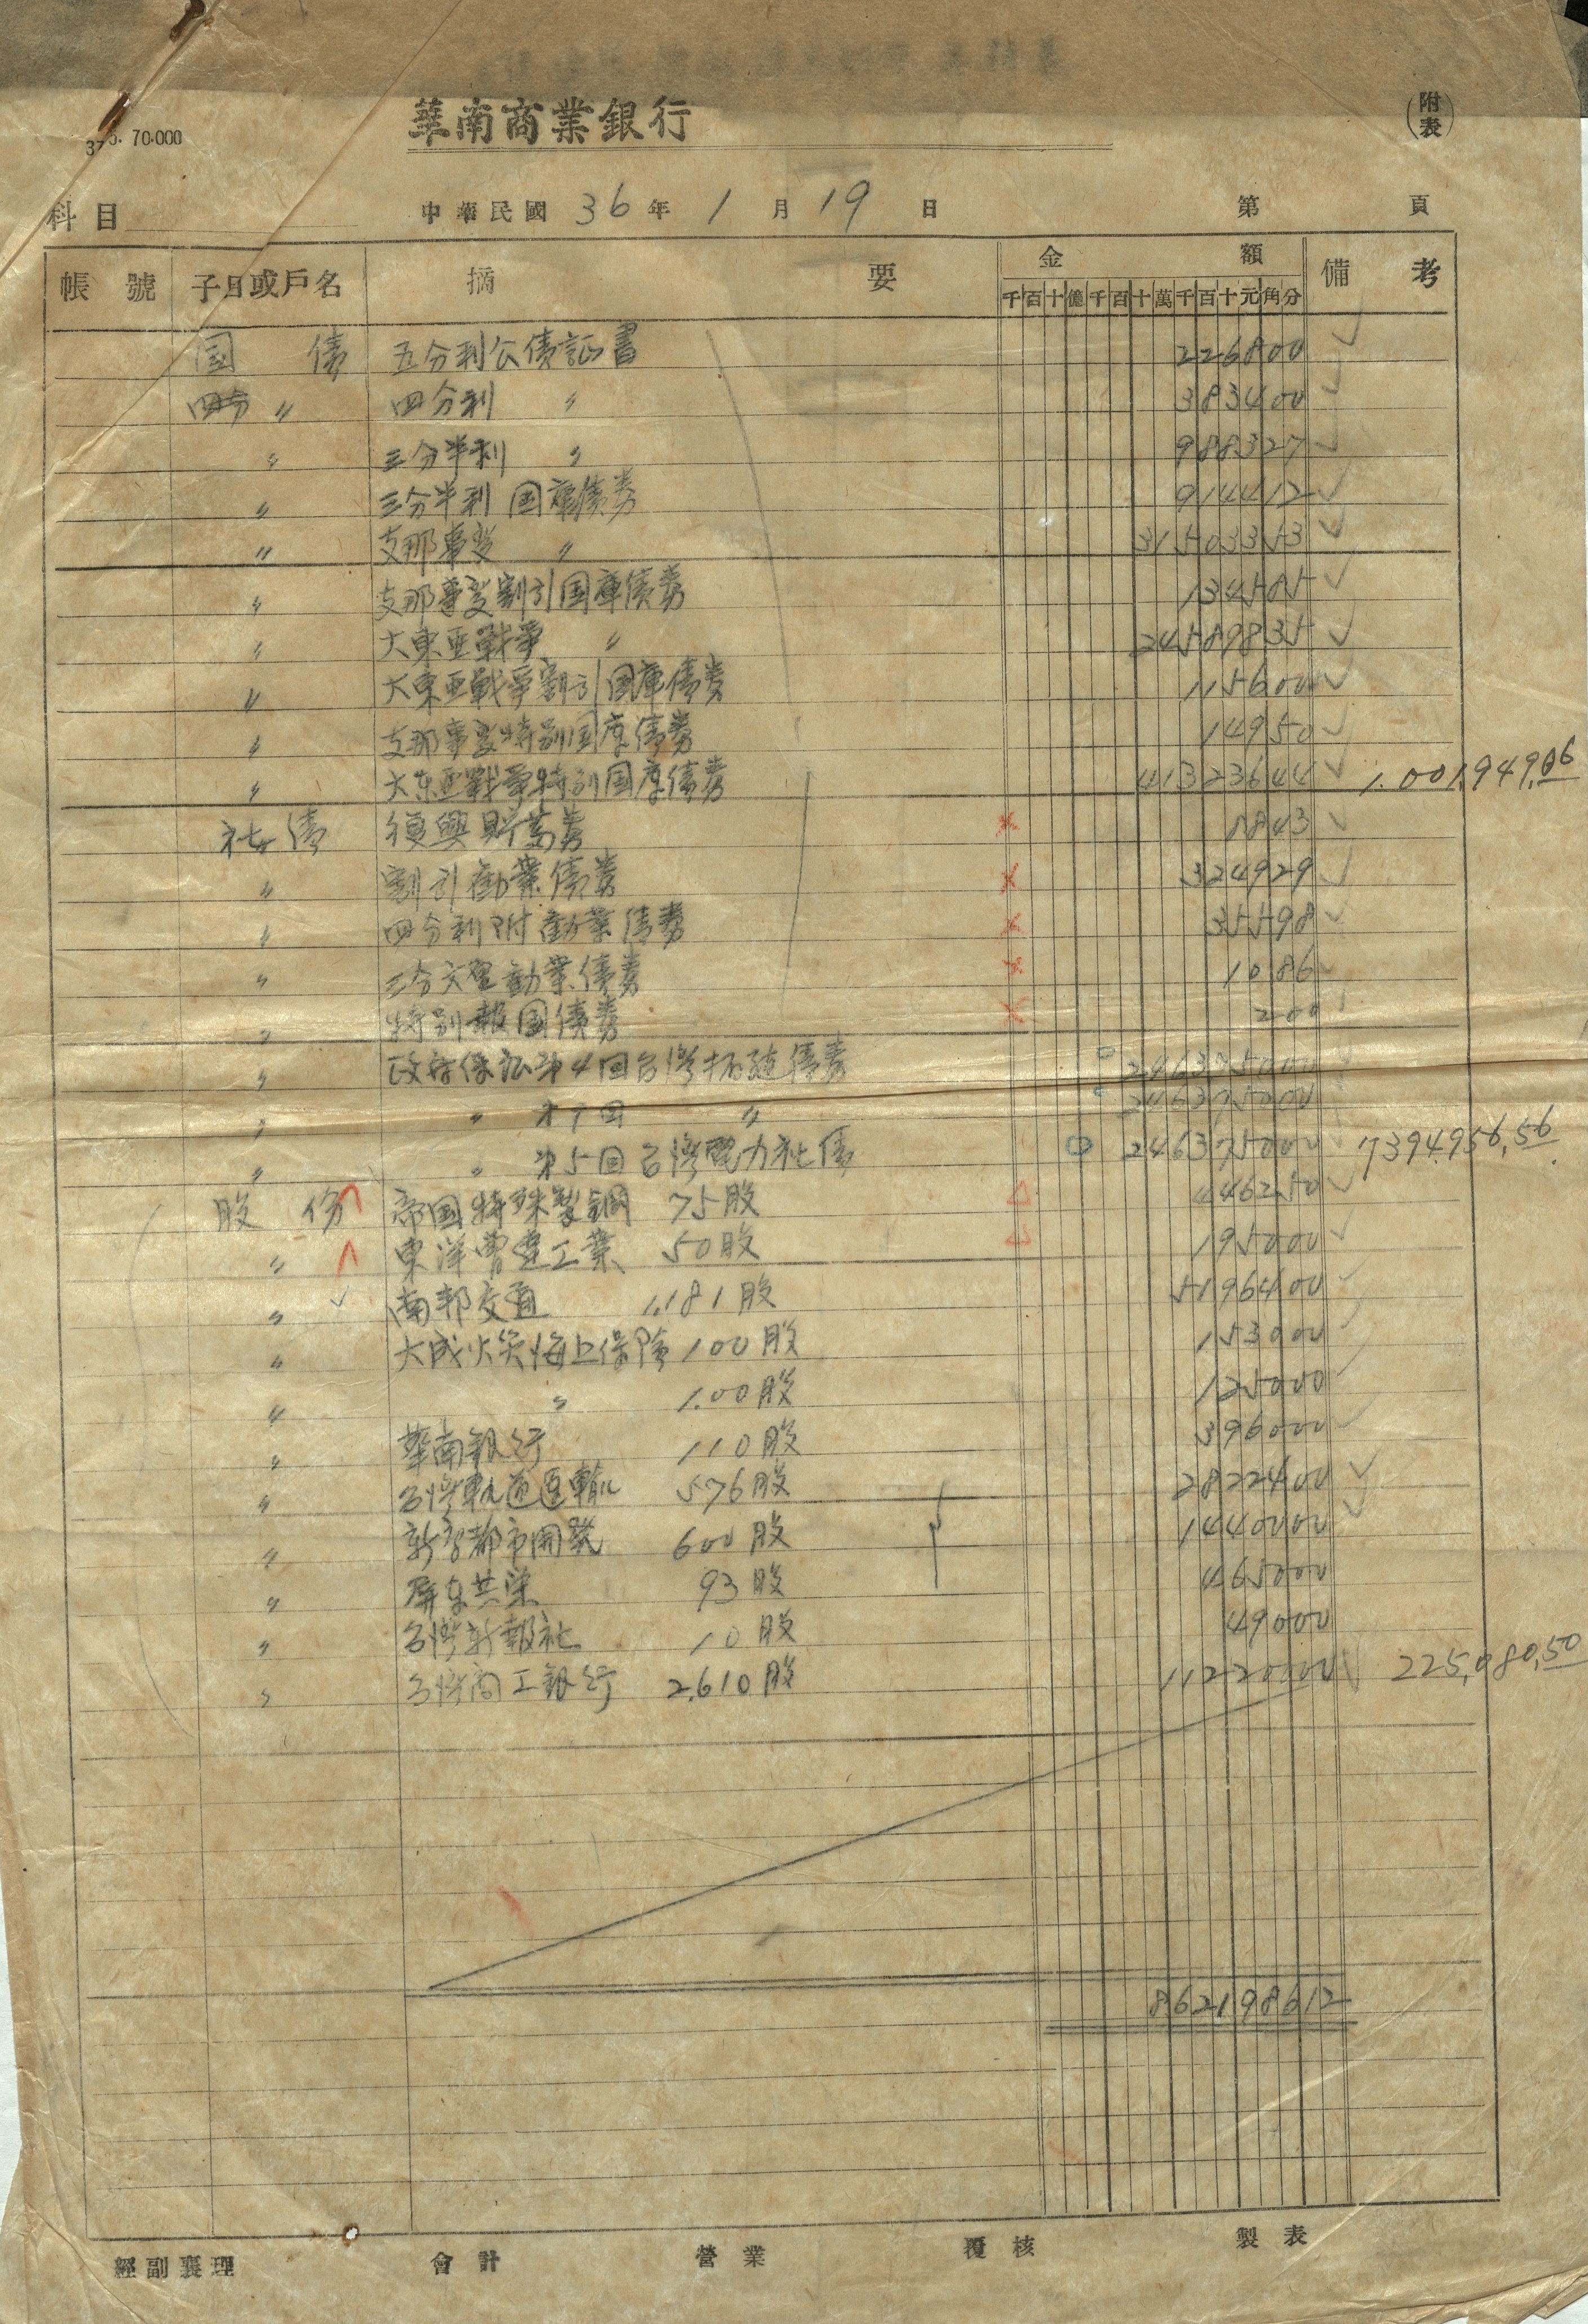 華南商業銀行
(附表)
375. 70.000
科目 中華民國 36 年 1 月 19 日 第 頁
帳號 子目或戶名 摘要 金額 備考
千百十億千百十萬千百十元角分
国債 五分利公債証書 226800
四分 〃 四分利 〃 383400
〃 三分半利 〃 988327
〃 三分半利 国庫債券 914412
〃 支那事変 〃 31503353
〃 支那事変割引国庫債券 134505
〃 大東亜戦爭 〃 24589835
〃 大東亜戦爭割引国庫債券 115600
〃 支那事変特別国庫債券 14950
〃 大东亜戦爭特別国庫債券 41323644 1.001.949.06
社債 復興貯蓄券 1843
〃 割引勧業債券 324929
〃 四分利附勧業債券 35598
〃 三分 勧業債券 1086
〃 特別報国債券 200
〃 政府保証第4回台湾拓殖債券 246375000
〃 〃 第7回 〃 246375000
〃 〃 第5回台湾電力社債 246375000 7394956.56
股份 帝国特殊製鋼 75股 446250
〃 東洋曹達工業 50股 195000
〃 南邦交通 1.181股 5196400
〃 大成火災海上保険 100股 153000
〃 〃 1.00股 125000
〃 華南銀行 110股 396000
〃 台湾軌道運輸 576股 2822400
〃 新高都市開発 600股 1440000
〃 屏东共栄 93股 465000
〃 台湾新報社 10股 49000
〃 台湾商工銀行 2.610股 11220000 225,080.50
862198612
經副襄理 會計 營業 覆核 製表